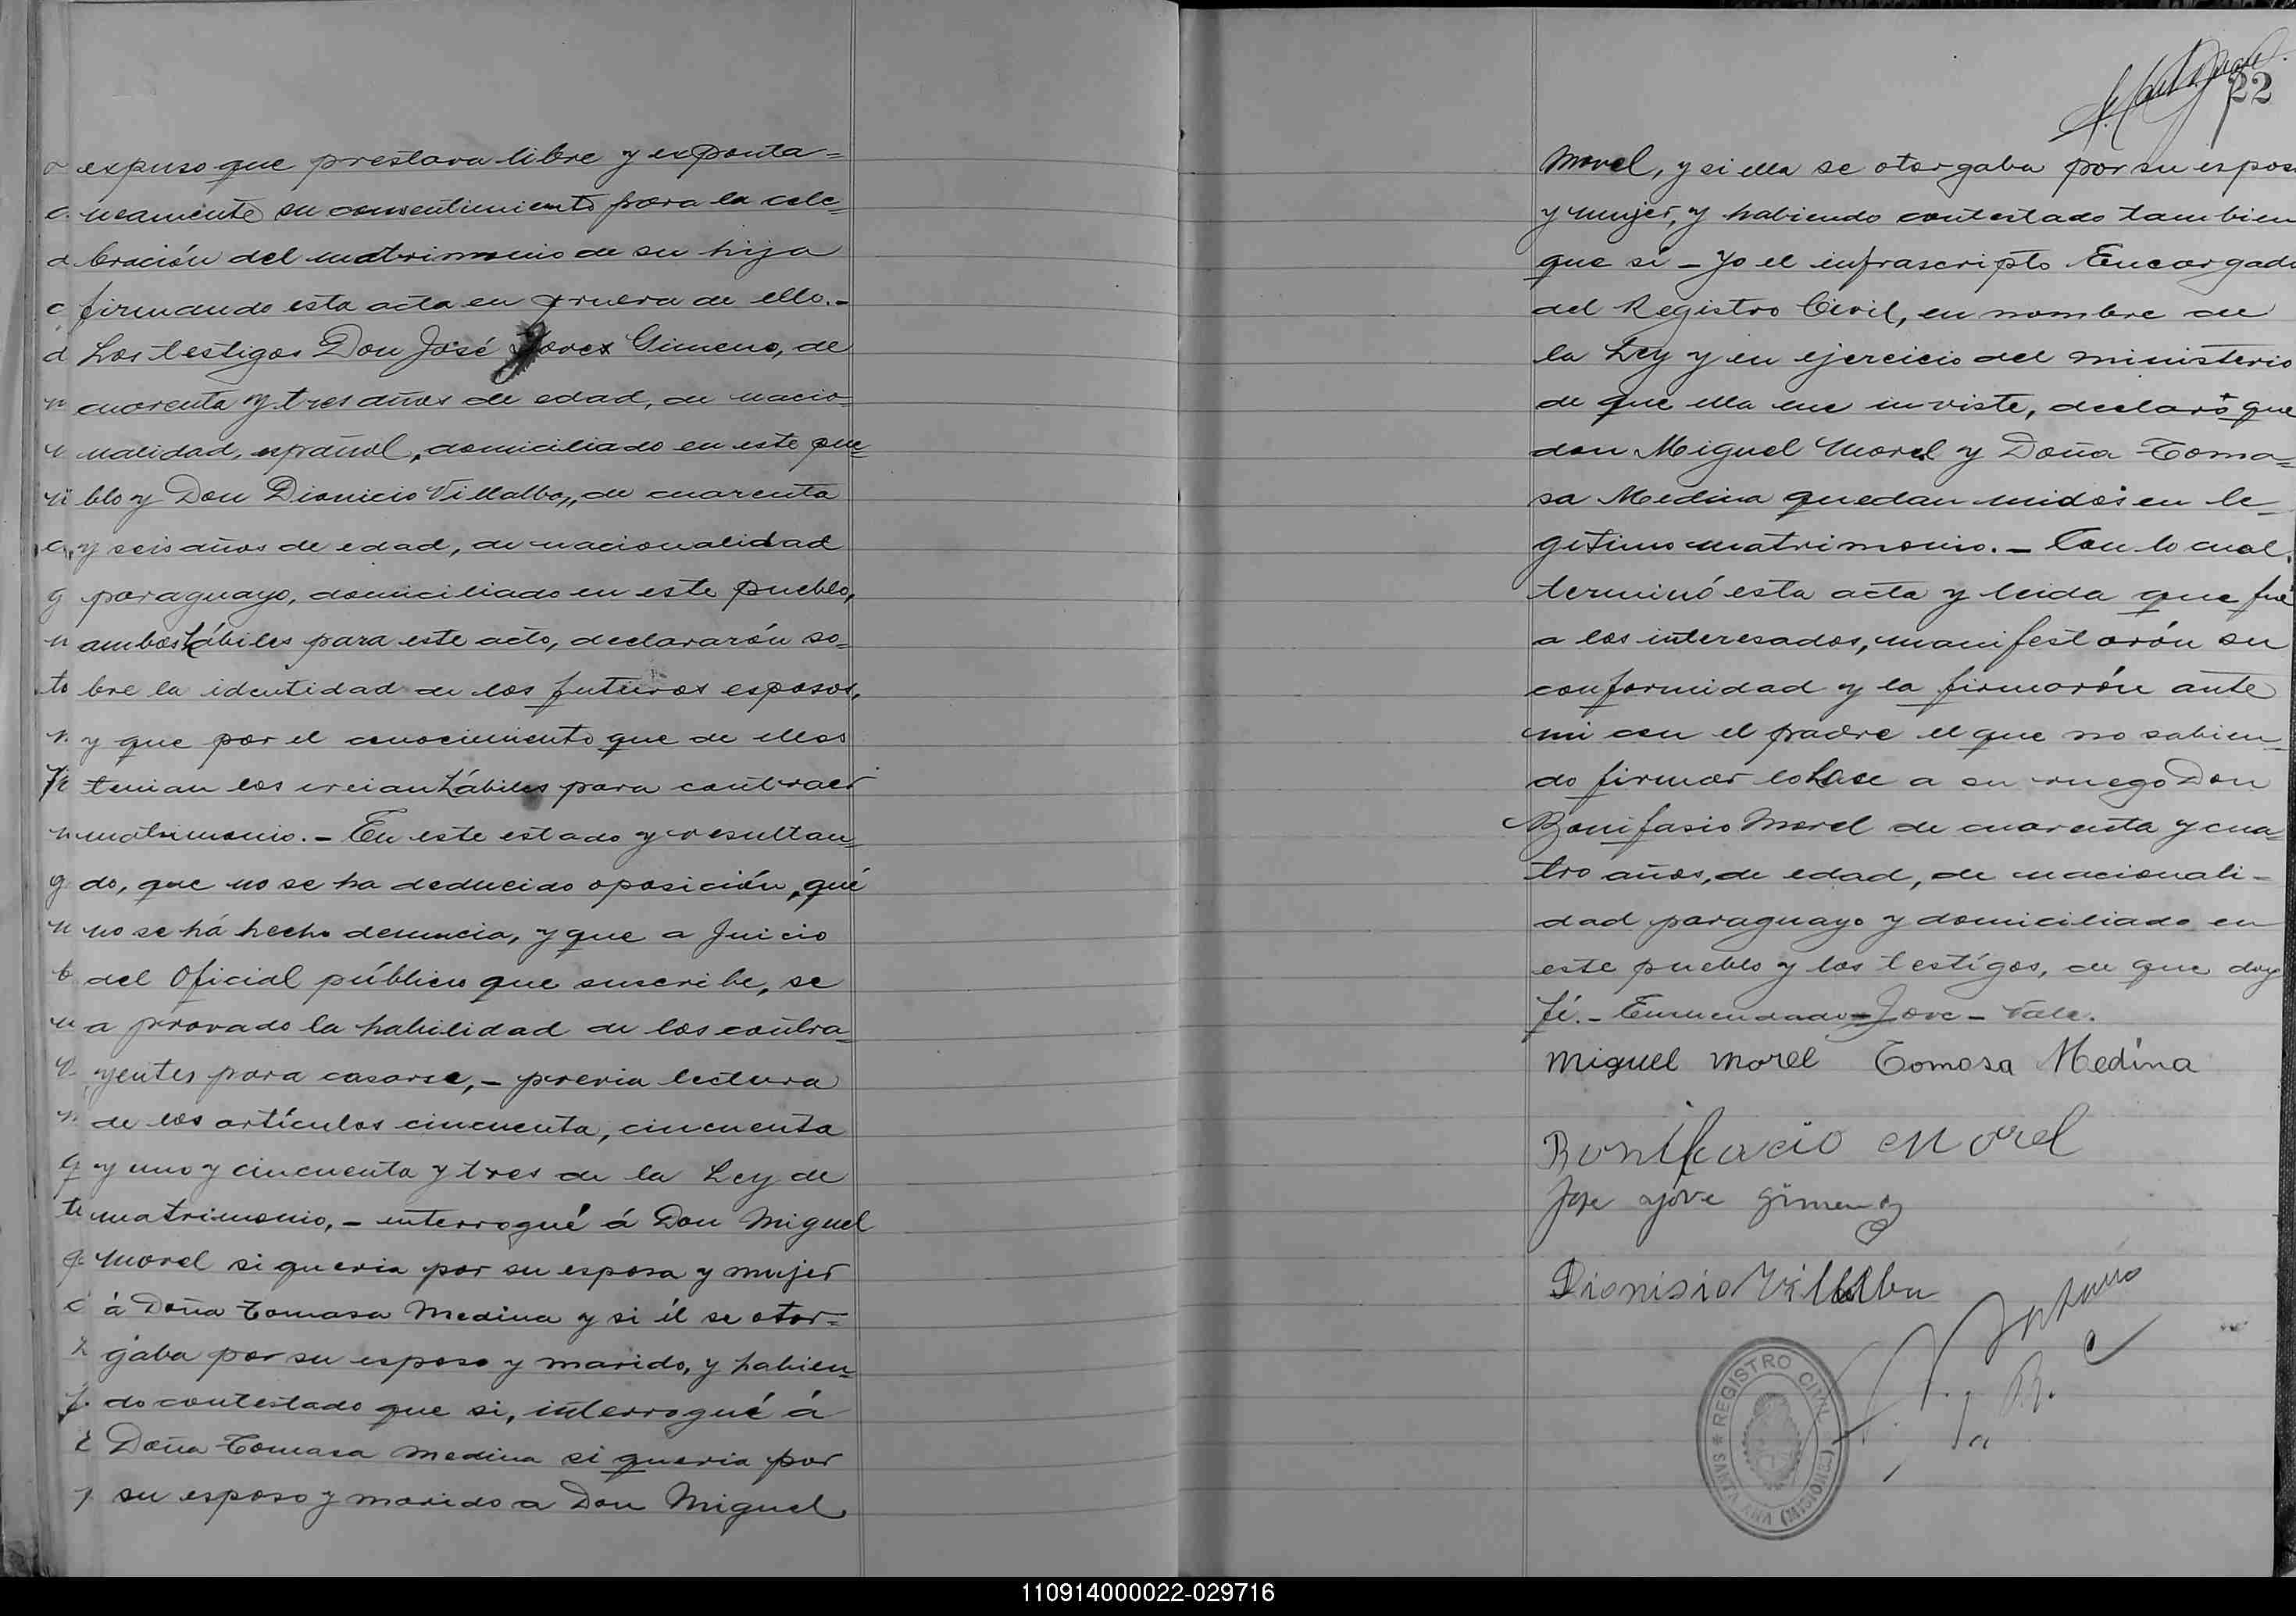 expuso que prestava libre y exponta=
neamente su consentimiento para la cele=
bración del matrimonio de su hija
firmando esta acta en prueva de ello.-
Los testigos Don José Jovex Gimeno, de
cuarenta y tres años de edad, de nacio=
nalidad, español, domiciliado en este pue=
blo y Don Dionicio Villalba, de cuarenta
y seis años de edad, de nacionalidad
paraguayo, domiciliado en este pueblo,
ambos hábiles para este acto, declararón so=
bre la identidad de los futuros esposos,
y que por el conocimiento que de ellos
tenian los creian hábiles para contraer
matrimonio.- En este estado y resultan=
do, que no se ha deducido oposición, qué
no se há hecho denuncia, y que a Juicio
del Oficial público que suscribe, se
a provado la habilidad de los contra=
yentes para casarse,- previa lectura
de los artículos cincuenta, cincuenta
y uno y cincuenta y tres de la Ley de
matrimonio,- interrogué á Don Miguel
Morel si queria por su esposa y mujer
á Doña Tomasa Medina y si él se otor=
gaba por su esposo y marido, y habien=
do contestado que si, interrogué á
Doña Tomasa Medina si queria por
su esposo y marido a Don Miguel
22
Morel, y si ella se otorgaba por su espos
y mujer, y habiendo contestado tambien
que sí - Yo el infrascripto Encargad
del Registro Civil, en nombre de
la Ley y en ejercicio del ministerio
de que ella me inviste, declaro que
don Miguel Morel y Doña Toma=
sa Medina quedan unidos en le=
gitimo matrimonio.- Con lo cual
terminó esta acta y leida que fue
a los interesados, manifestarón su
conformidad y la firmarón ante
mi con el padre el que no sabien=
do firmar lo hace a su ruego Don
Bonifasio Morel de cuarenta y cua=
tro años, de edad, de nacionali-
dad paraguayo y domiciliado en
este pueblo y los testígos, de que doy
fé.- Enmendado-Jove-Vale.
Miguel Morel Tomasa Medina
Bonifacio Morel
Jose Jove Gimeno
Dionisio Villalba
REGISTRO CIVIL
* SANTA ANA (MISIONES)
110914000022-029716